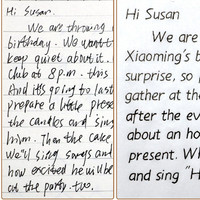 Hi Susan.
We are throwing
birthday. We want t
keep quiet about it.
Club at 8p.m. this
And it's going to last
prepare a little prese
the candles and sing
him. Then the cake
We'll sing songs and
how excited he will be
at the party, too.
Hi Susan
We are
Xiaoming's b
surprise, so
gather at the
after the ev
about an ho
present. Wh
and sing "H